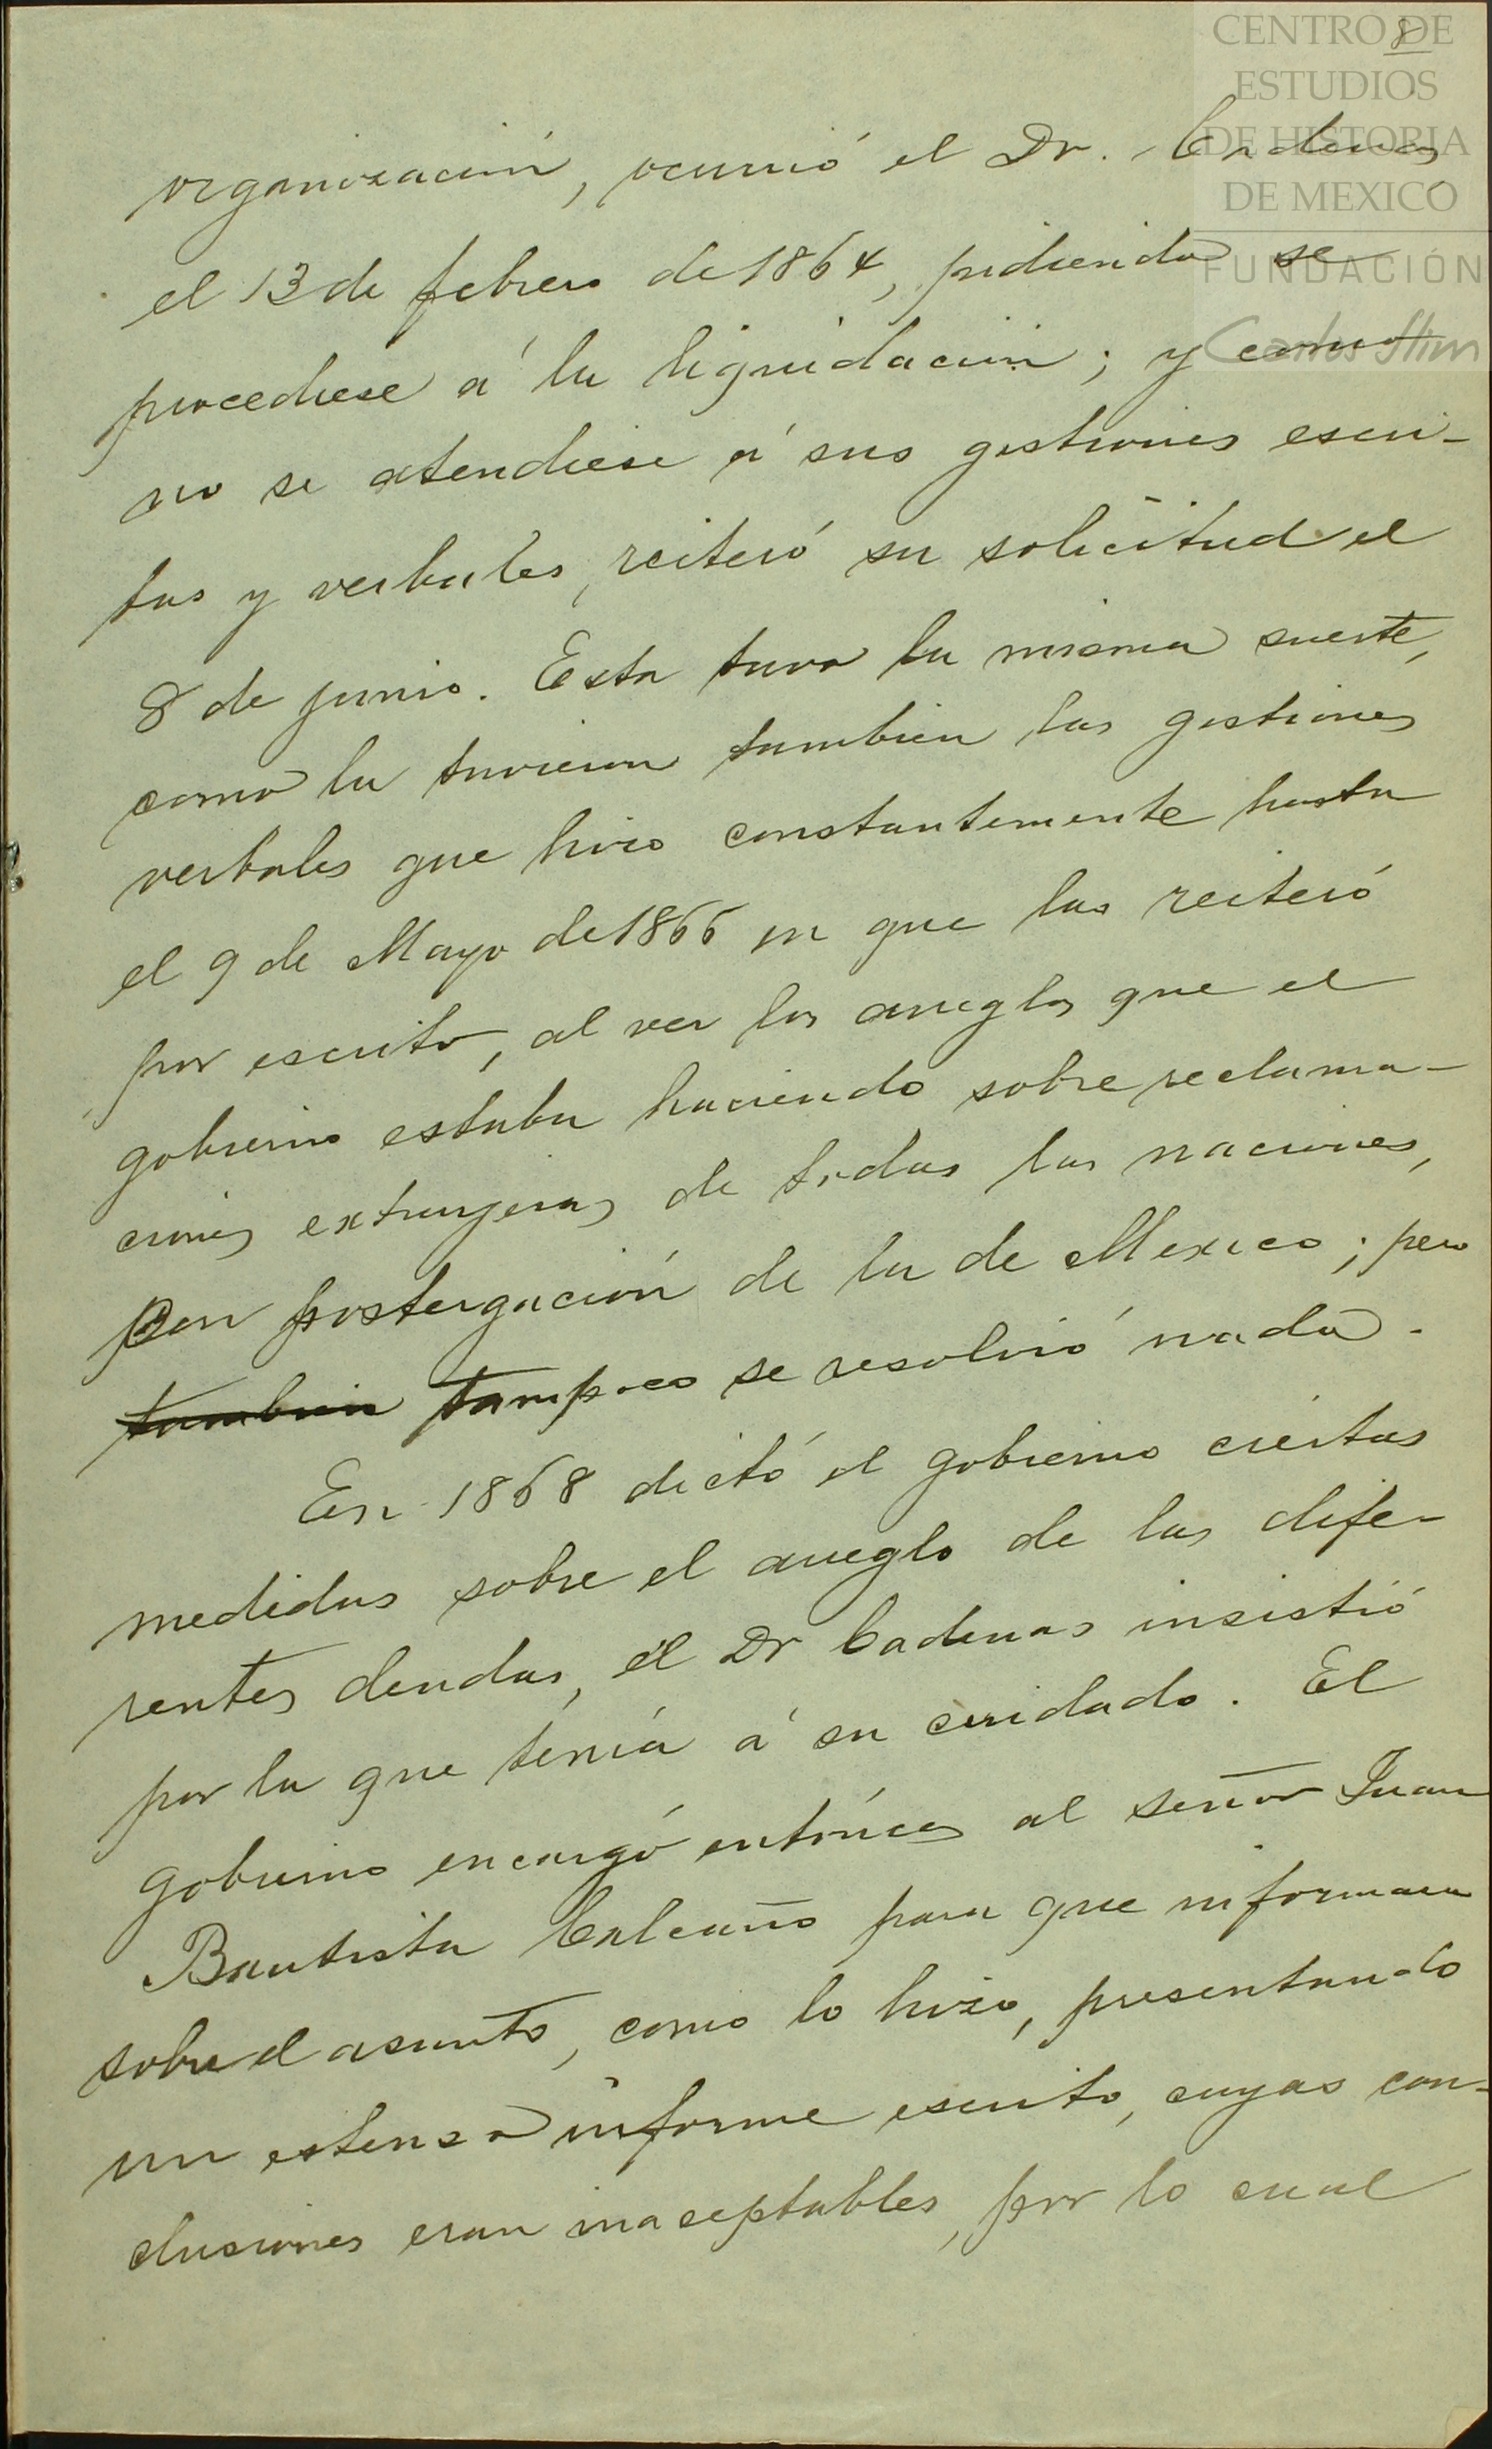 8
CENTRO DE
ESTUDIOS
DE HISTORIA
DE MEXICO
FUNDACIÓN
Carlos Slim
organización, ocurrió el Dr. Cadenas
el 13 de febrero de 1864, pidiendo se
procediese á la liquidación; y como
no se atendiese á sus gestiones escri-
tas y verbales, reiteró su solicitud el
8 de junio. Esta tuvo la misma suerte,
como la tuvieron tambien las gestiones
verbales que hizo constantemente hasta
el 9 de Mayo de 1866 en que las reiteró
por escrito, al ver los arreglos que el
gobierno estaba haciendo sobre reclama-
ciones extrangeras de todas las naciones,
con postergación de la de Mexico; pero
tambien tampoco se resolvió nada.
En 1868 dictó el gobierno ciertas
medidas sobre el arreglo de las dife-
rentes deudas, él Dr Cadenas insistió
por la que tenía á su cuidado. El
gobierno encargó entónces al señor Juan
Bautista Calcaño para que informara
sobre el asunto, como lo hizo, presentando
un estenso informe escrito, cuyas con-
clusiones eran inaceptables, por lo cual